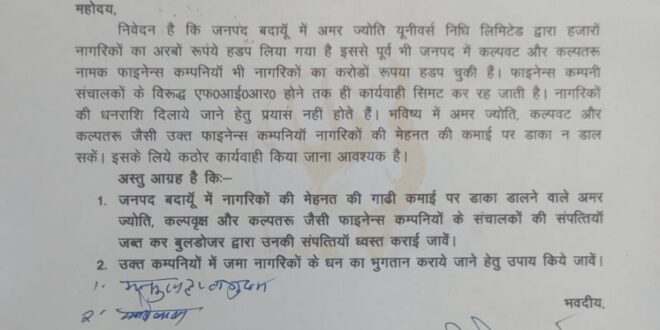 महोदय,
निवेदन है कि जनपद बदायूॅ में अमर ज्योति यूनीवर्स निधि लिमिटेड द्वारा हजारों
नागरिकों का अरबों रूपंये हडप लिया गया है इससे पूर्व भी जनपद में कल्पवट और कल्पतरू
नामक फाइनेन्स कम्पनियॉ भी नागरिकों का करोडों रूपया हडप चुकी हैं। फाइनेन्स कम्पनी
संचालकों के विरूद्ध एफ0आई0आर0 होने तक ही कार्यवाही सिमट कर रह जाती है। नागरिकों
की धनराशि दिलाये जाने हेतु प्रयास नहीं होते हैं। भविष्य में अमर ज्योति, कल्पवट और
कल्पतरू जैसी उक्त फाइनेन्स कम्पनियॉ नागरिकों की मेहनत की कमाई पर डाका न डाल
सकें। इसके लिये कठोर कार्यवाही किया जाना आवश्यक है।
अस्तु आग्रह है कि:–
1. जनपद बदायूॅ में नागरिकों की मेहनत की गाढी कमाई पर डाका डालने वाले अमर
ज्योति, कल्पवृक्ष और कल्पतरू जैसी फाइनेन्स कम्पनियों के संचालकों की संपत्तियॉ
जब्त कर बुलडोजर द्वारा उनकी संपत्तियॉ ध्वस्त कराई जावें।
2. उक्त कम्पनियों में जमा नागरिकों के धन का भुगतान कराये जाने हेतु उपाय किये जावें।
1.
भवदीय,
2.